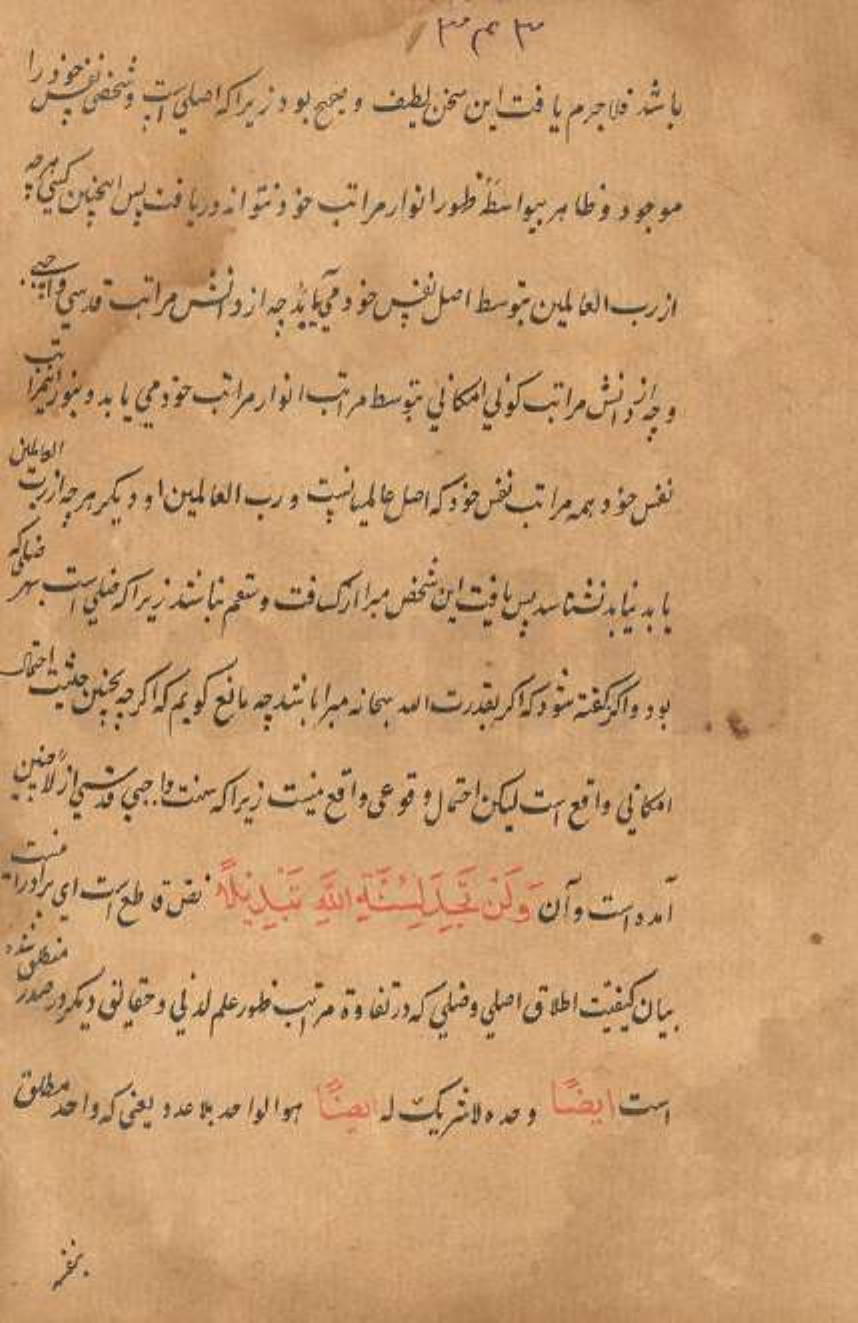 ۳۴۳
باشد فلاجرم یافت این سخن لطیف و صحیح بود زیرا که اصلی است و شخصی نفس خود را
موجود و ظاهر بیواسطهٔ ظهور انوار مراتب خود نتواند دریافت پس اینچنین کسی هرچه
از رب العالمین بتوسط اصل نفس خود می یابد چه از دانش مراتب قدسی واجبی
و چه از دانش مراتب کونی امکانی بتوسط مراتب انوار مراتب خود می یابد و بنور
نفس خود همه مراتب نفس خود که اصل عالمیانست و رب العالمین او و دیکر هرچه از رب العالمین
یابد نیابد نشناسد پس یافت این شخص مبرا از کسافت و نباشد زیرا که ضلی است بهر ضلی که
بود و اکر کفته شود که اکر بقدرت الله سبحانه مبرا باشد چه مانع کویم که اکرچه بچنین حیثیت احتمال
امکانی واقع است لیکن احتمال وقوعی واقع نیست زیرا که سنت واجبی قدسی از لا چنین
آمده است و آن وَلَنْ تَجِدَ لِسُنَّةِ اللَّهِ تَبْدِيلًا نص قاطع است ای برادر نیست
بیان کیفیت اطلاق اصلی و ضلی که در تفاوة مراتب ظهور علم لدنی و حقائق دیکر در صدر منطلق شده
است ایضًا وحده لا شریک له ایضًا هو الواحد بلا عدد یعنی که واحد مطلق